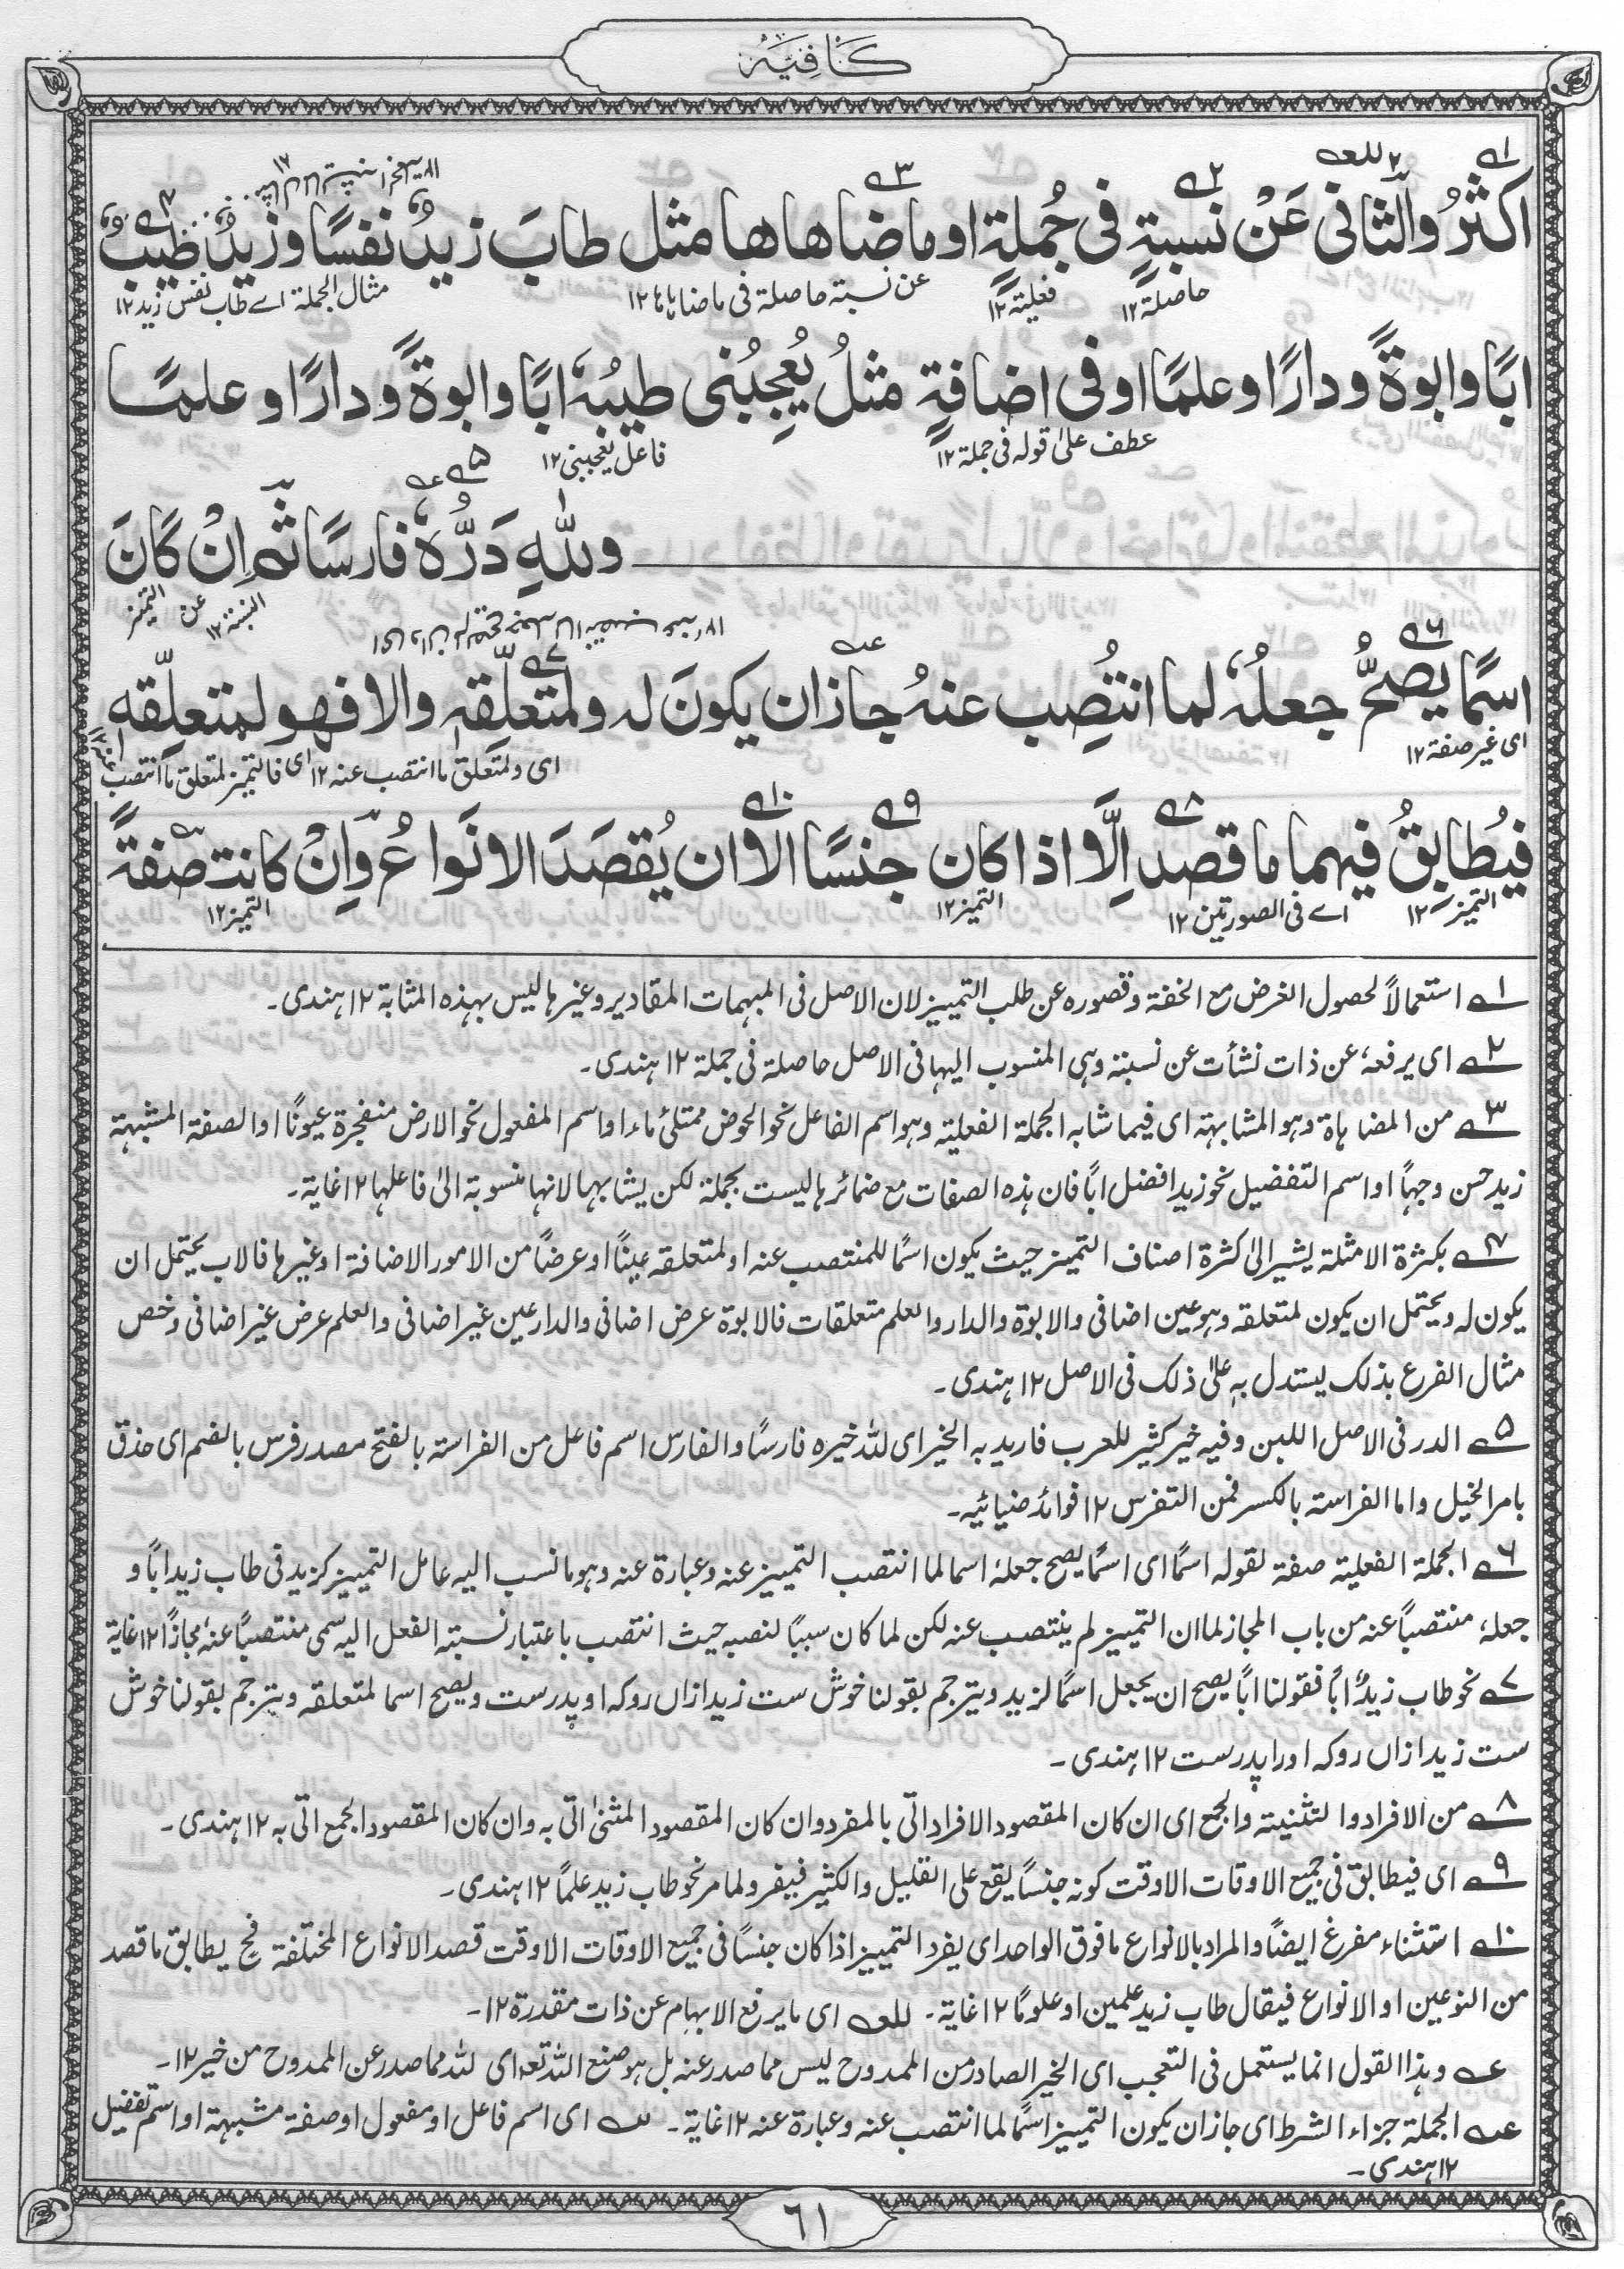 كافية
اكثرُ والثانی عَنْ نسبةٍ فی جُملةٍ او ماضاهاها مثل طابَ زيدٌ نفسًا وزيدٌ طيّبٌ
حاصلة ١٢ فعلية ١٢ عن نسبتہ حاصلۃ فی ماضاہاہا ١٢ مثال الجملۃ اے طاب نفس زید ١٢
ابًا وابوةً ودارًا وعلمًا او فی اضافةٍ مثلُ يُعجِبُنی طيبُهٗ ابًا وابوةً ودارًا وعلمًا
عطف علیٰ قولہ فی جملۃ ١٢ فاعل یعجبنی ١٢
وللّٰهِ دَرُّهٗ فارسًا ثم اِنْ كَانَ
التمیز عن النسبۃ ١٢
اسمًا يصحُّ جعلُهٗ لما انتُصِب عنهُ جاز ان يكونَ له ولمتعلّقهٖ والا فهو لمتعلّقه
ای غیر صفۃ ١٢ ای ولمتعلق ما انتصب عنہ ١٢ ای فالتمیز لمتعلق ما انتصب عنہ ١٢
فيُطابِقُ فيهما ما قصد اِلَّا اذا كان جنسًا الا ان يُقصَدَ الانَواعُ وَاِنْ كانت صفةً
التمیز ١٢ اے فی الصورتین ١٢ التمیز ١٢ التمیز ١٢
١ استعمالاً لحصول الغرض مع الخفۃ وقصورہ عن طلب التمییز لان الاصل فی المبہمات المقادیر وغیرہا لیس بہذہ المثابۃ ١٢ ہندی۔
٢ ای یرفعہٗ عن ذات نشأت عن نسبتہ وہی المنسوب الیہا فی الاصل حاصلۃ فی جملۃ ١٢ ہندی۔
٣ من المضاہاۃ وہو المشابہتہ ای فیما شابہ الجملۃ الفعلیتہ وہو اسم الفاعل نحو الحوض ممتلئ ماء او اسم المفعول نحو الارض منفجرۃ عیونًا او الصفۃ المشبہتہ
زید حسن وجہًا او اسم التفضیل نحو زید افضل ابًا فان ہذہ الصفات مع ضمائرہا لیست بجملۃ لکن یشابہہا لانہا منسوبۃ الیٰ فاعلہا ١٢ غایۃ۔
٤ بکثرۃ الامثلۃ یشیر الیٰ کثرۃ اصناف التمییز حیث یکون اسمًا للمنتصب عنہ او لمتعلقہ عینًا او عرضًا من الامور الاضافۃ او غیرہا فالاب یحتمل ان
یکون لہ ویحتمل ان یکون لمتعلقہ وہو عین اضافی والابوۃ والدار والعلم متعلقات فالابوۃ عرض اضافی والدار عین غیر اضافی والعلم عرض غیر اضافی وخص
مثال الفرع بذلک یستدل بہٖ علیٰ ذلک فی الاصل ١٢ ہندی۔
٥ الدر فی الاصل اللبن وفیہ خیر کثیر للعرب فارید بہ الخیر ای للّٰہ خیرہ فارسًا والفارس اسم فاعل من الفراستہ بالفتح مصدر فرس بالضم ای حذق
بامر الخیل واما الفراستہ بالکسر فمن التفرس ١٢ فوائد ضیائیہ۔
٦ الجملۃ الفعلیتہ صفۃ لقولہ اسمًا ای اسمًا یصح جعلہٗ اسما لما انتصب التمییز عنہ وعبارۃ عنہ وہو ما نسب الیہ عامل التمییز کزید فی طاب زید ابًا و
جعلہٗ منتصبًا عنہ من باب المجاز لما ان التمییز لم ینتصب عنہ لکن لما کان سببًا لنصبہ حیث انتصب باعتبار نسبتہ الفعل الیہ سمی منتصبًا عنہٗ مجازًا ١٢ غایۃ
٧ نحو طاب زیدٌ ابًا فقولنا ابًا یصح ان یجعل اسمًا لزید ویترجم بقولنا خوش ست زید ازاں روکہ او پدرست ویصح اسما لمتعلقہ ویترجم بقولنا خوش
ست زید ازاں روکہ اورا پدرست ١٢ ہندی۔
٨ من الافراد والتثنیتہ والجمع ای ان کان المقصود الافراد اتی بالمفرد وان کان المقصود المثنیٰ اتی بہ وان کان المقصود الجمع اتی بہ ١٢ ہندی۔
٩ ای فیطابق فی جمیع الاوقات الا وقت کونہ جنسًا یقع علی القلیل والکثیر فیفرد لما مر نحو طاب زید علمًا ١٢ ہندی۔
١٠ استثناء مفرغ ایضًا والمراد بالانواع مافوق الواحد ای یفرد التمییز اذا کان جنسًا فی جمیع الاوقات الا وقت قصد الانواع المختلفۃ فح یطابق ما قصد
من النوعین او الانواع فیقال طاب زید علمین او علومًا ١٢ غایۃ۔ للعہ ای ما یرفع الابہام عن ذات مقدرۃ ١٢۔
عہ وہذا القول انما یستعمل فی التعجب ای الخیر الصادر من الممدوح لیس مما صدر عنہ بل ہو صنع اللّٰہ تعہ ای للّٰہ مما صدر عن الممدوح من خیر ١٢۔
عہ الجملۃ جزاء الشرط ای جاز ان یکون التمییز اسمًا لما انتصب عنہ وعبارۃ عنہ ١٢ غایۃ۔ ای اسم فاعل او مفعول او صفۃ مشبہتہ او اسم تفضیل
١٢ ہندی۔
٦١